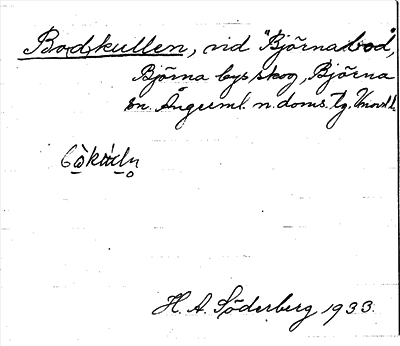 Bodkullen, vid "Björnabod",
Björna bys skog, Björna
sn. Ångerml. n. doms. tg. Vnorrl. l.
H. A. Söderberg 1933.